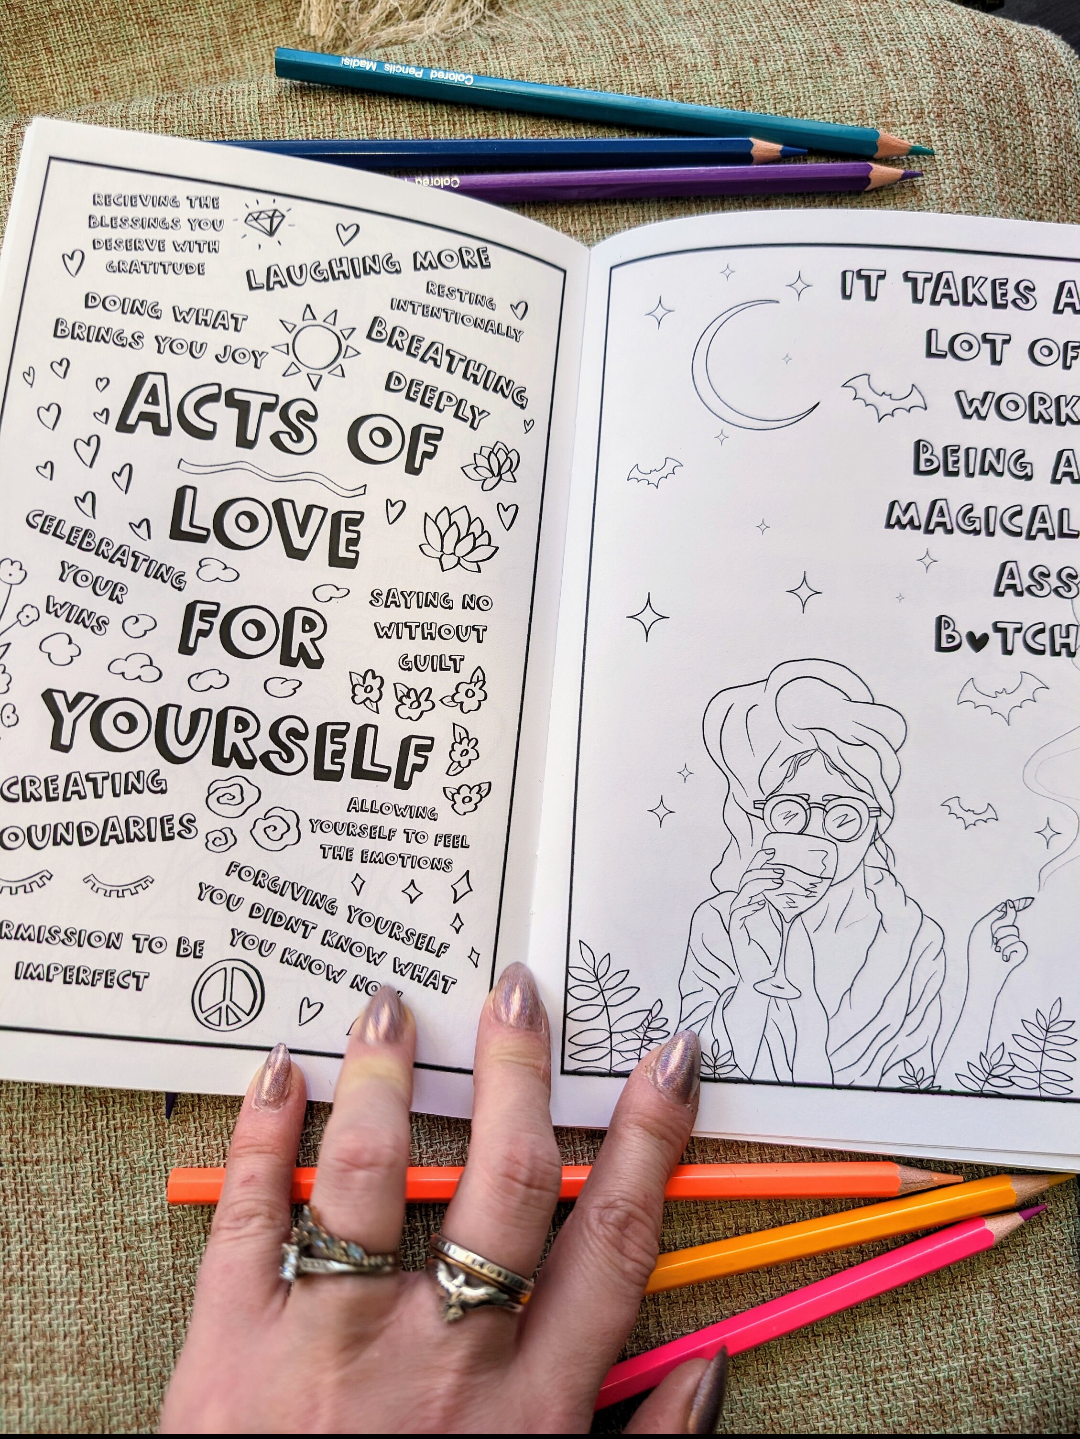 Colored Pencils Madisi
Colored Pe
RECIEVING THE
BLESSINGS YOU
DESERVE WITH
GRATITUDE
LAUGHING MORE
RESTING
INTENTIONALLY
DOING WHAT
BRINGS YOU JOY
BREATHING
DEEPLY
ACTS OF
LOVE
FOR
YOURSELF
CELEBRATING
YOUR
WINS
SAYING NO
WITHOUT
GUILT
CREATING
OUNDARIES
ALLOWING
YOURSELF TO FEEL
THE EMOTIONS
FORGIVING YOURSELF
YOU DIDNT KNOW WHAT
YOU KNOW NOW
RMISSION TO BE
IMPERFECT
IT TAKES A
LOT OF
WORK
BEING A
MAGICAL
ASS
B♥TCH